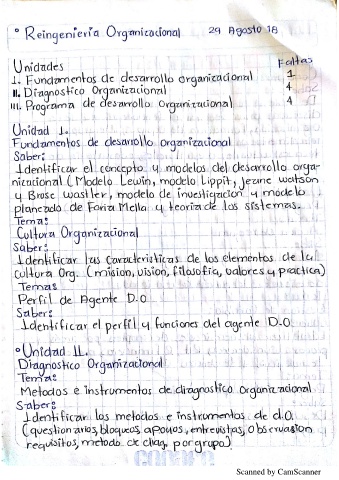 ° Reingeniería Organizacional 29 Agosto 18
Unidades Faltas
I. Fundamentos de desarrollo organizacional 1
II. Diagnostico Organizacional 4
III. Programa de desarrollo Organizacional 4
Unidad I.
Fundamentos de desarrollo organizacional
Saber:
Identificar el concepto y modelos del desarrollo orga-
nizacional (Modelo Lewin, modelo Lippit, Jeane Watson
y Brose Wastler, modelo de investigacion y modelo
planeado de Foria Mella y teoria de los sistemas.
Tema:
Cultura Organizacional
Saber:
Identificar las caracteristicas de los elementos de la
cultura Org. (mision, vision, filosofia, valores y practica)
Temas
Perfil de Agente D.O
Saber:
Identificar el perfil y funciones del agente D.O
° Unidad II.
Diagnostico Organizacional
Tema:
Metodos e instrumentos de diagnostico organizacional
Saber:
Identificar los metodos e instrumentos de d.O.
(questionarios, bloqueos, apoyos, entrevistas, observacion
requisitos, metodo de diag. por grupo).
Scanned by CamScanner